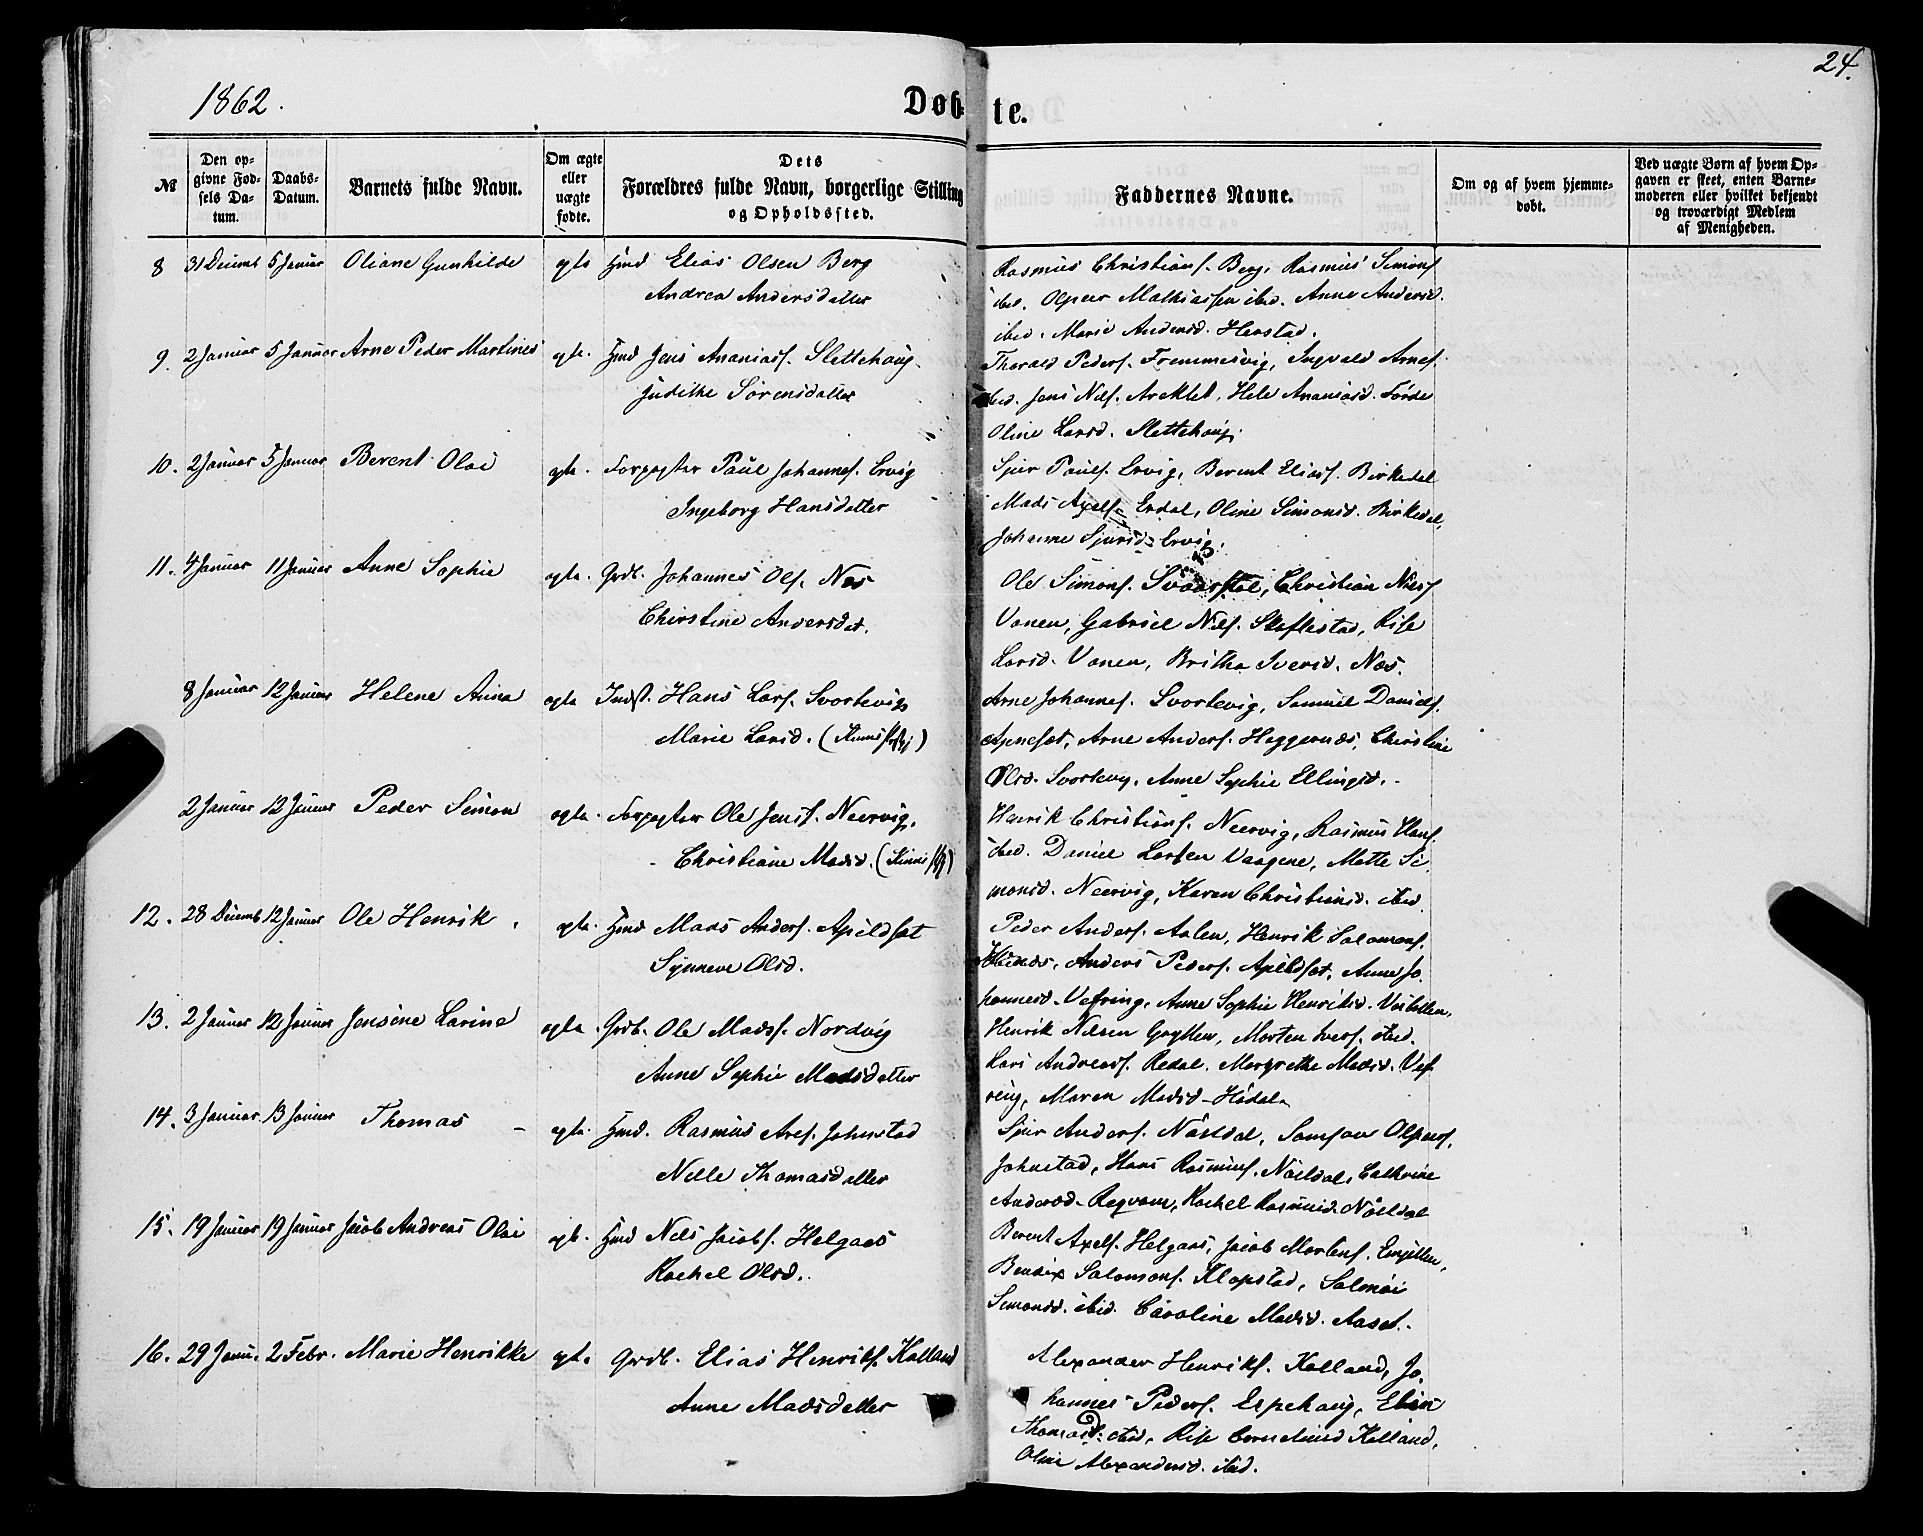 24.
1862.
Døbte.
№
Den opgivne Fødsels Datum.
Daabs-Datum.
Barnets fulde Navn.
Om ægte eller uægte fødte.
Dets Forældres fulde Navn, borgerlige Stilling og Opholdssted.
Faddernes Navne.
Om og af hvem hjemmedøbt.
Ved uægte Børn af hvem Opgaven er skeet, enten Barnemoderen eller hvilket bekjendt og troværdigt Medlem af Menigheden.
8 31 Decemb 5 Januar Oliane Gunhilde ægte Hmd Elias Olsen Berg
Andrea Andersdatter
Rasmus Christians. Berg, Rasmus Simons.
ibid. Olpeer Mathiassen ibid. Anne Andersd.
ibid. Marie Andersd. Herstad.
9. 2 Januar 5 Januar Arne Peder Martines ægte. Hmd Jens Ananiass. Slettehaug.
Judithe Sørensdatter
Thorald Peders. Fremmesvig, Ingvald Arnes.
ibid. Jens Nils. Areklet, Hele Ananiasd. Førde
Oline Larsd. Slettehaug.
10. 2 Januar 5 Januar Berent Olai ægte. Forpagter Paul Johannes. Ervig
Ingeborg Hansdatter
Sjur Pauls. Ervig, Berent Eliass. Birkedal
Mads Axels. Erdal, Oline Simonsd. Birkedal,
Johanne Sjursd. Ervig.
11. 4 Januar 11 Januar Anne Sophie ægte. Grdb. Johannes Ols. Nes
Christine Andersdat.
Ole Simons. Svaarstøl, Christian Niels
Vonen, Gabriel Nils. Skaflestad, Rise
Larsd. Vonen, Britha Iversd. Nes.
8 Januar 12 Januar Helene Anna ægte Indst. Hans Lars. Svortevig
Marie Larsd. (Kinns Prstgj)
Arne Johannes. Svortevig, Samuel Daniels.
Apnesæt, Arne Anders. Heggernæs, Christine
Olsd. Svortevig, Anne Sophie Ellingsd.
2 Januar 12 Januar Peder Simon ægte. Forpagter Ole Jens. Neervig,
Christiane Madsd. (Kinns)
Henrik Christians. Neervig, Rasmus Hans.
ibid. Daniel Larsen Vaagene, Mette Simonsd.
Neervig, Karen Christiansd. ibid
12. 28 Decemb 12 Januar Ole Henrik ægte. Hmd Mads Anders. Apeldsæt
Synneve Olsd.
Peder Anders. Aalen, Henrik Salomons.
Anders Peders. Apeldsæt, Anne Johannesd.
Vefring, Anne Sophie Henriksd.
13. 2 Januar 12 Januar Jensine Larine ægte. Grdb. Ole Madss. Nordvig
Anne Sophie Madsdatter
Henrik Nilsen Grytten, Morten Ivers. ibid.
Lars Andreass. Redal, Margrethe Madsd. Vefring,
Maren Madsd. Hødal.
14. 3 Januar 13 Januar Thomas ægte. Hmd. Rasmus Ares. Johnstad
Nille Thomasdatter
Sjur Anders. Nøsldal, Samson Olpeers.
Johnstad, Hans Rasmus. Nøsldal, Cathrine
Andersd. Reqvam, Rachel Rasmusd. Nøsldal
15. 19 Januar 19 Januar Jacob Andreas Olai ægt. Hmd Nils Jacobs. Helgaas
Rachel Olsd.
Berent Axels. Helgaas, Jacob Mortens.
Bendix Salomons. Klopstad, Salmøi
Simonsd. ibid. Caroline Madsd. Aaset.
16. 29 Janu. 2 Febr. Marie Henrikke ægte Grdb. Elias Henriks. Kalland
Anne Madsdatter
Alexander Henriks. Kalland, Johannes
Peders. Espehaug, Elen
Thomasd. ibid, Rise Corneliusd Kalland,
Oline Alexandersd. ibid.